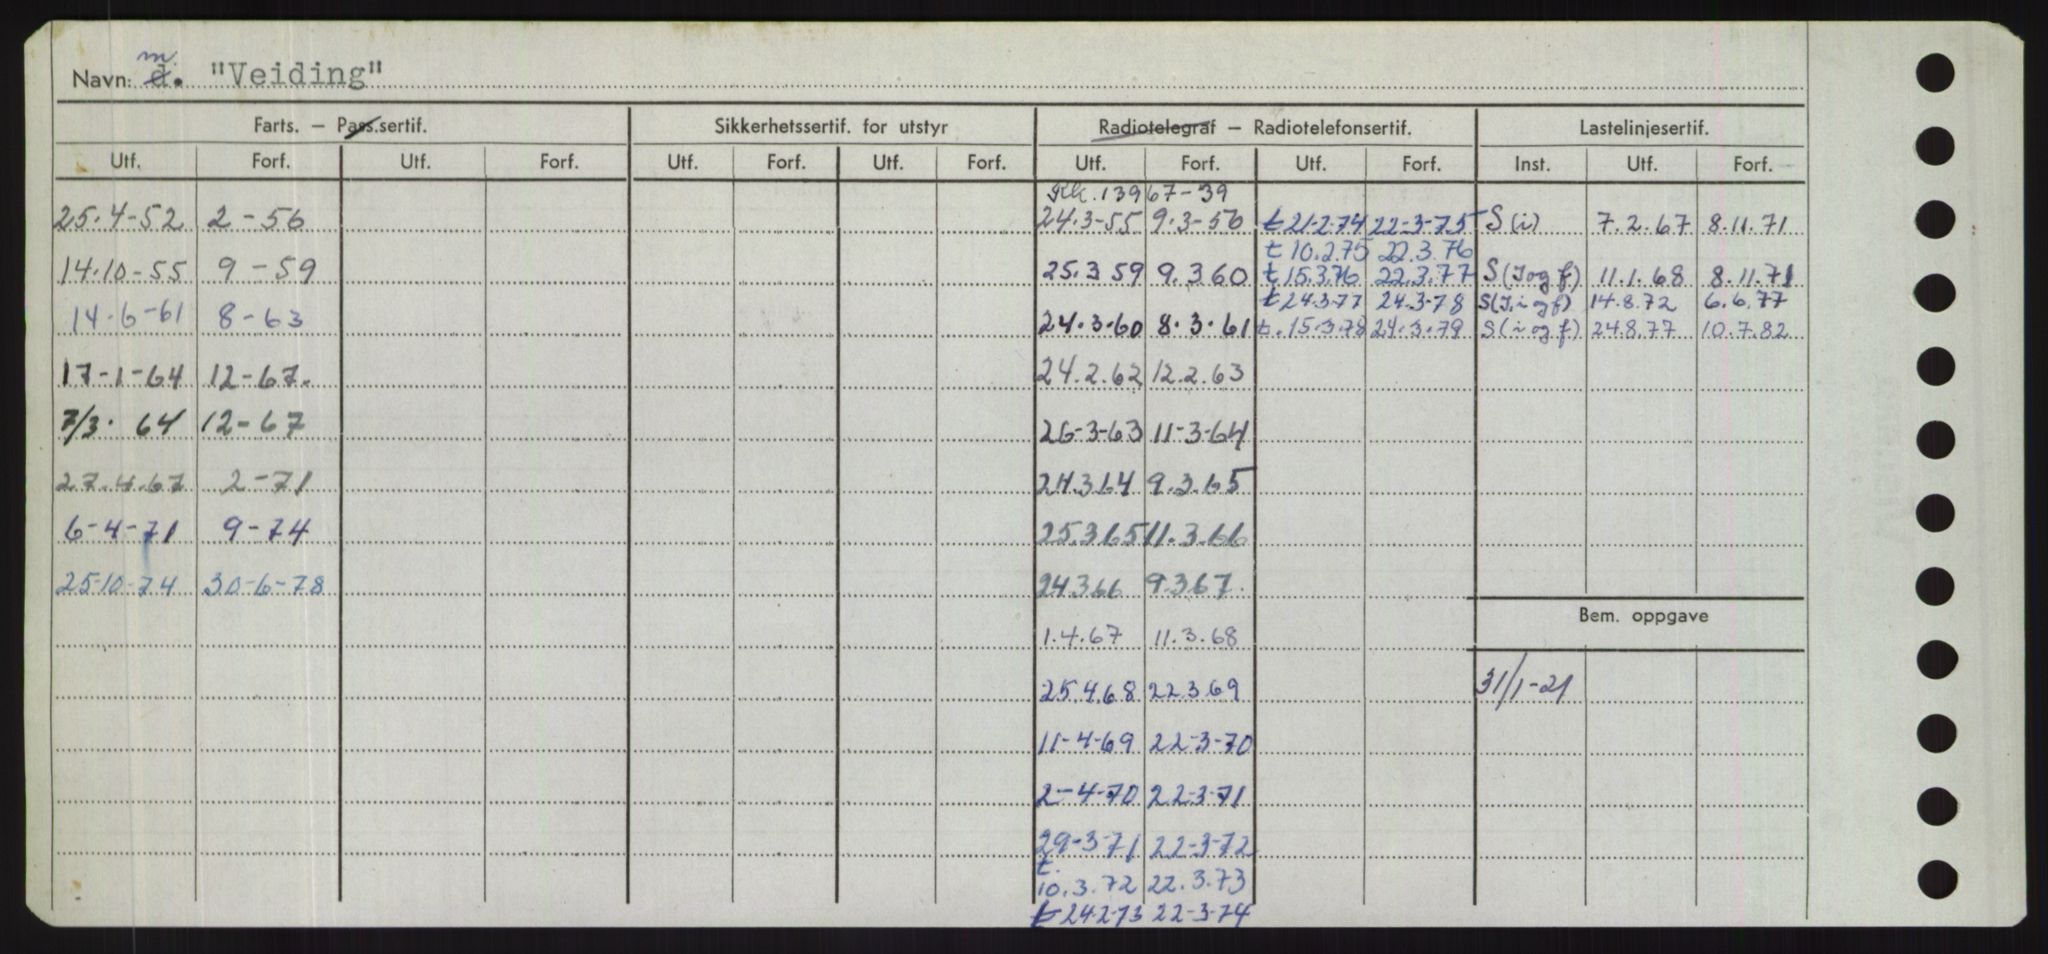 Navn: m. d. "Veiding"
Farts. — Pass.sertif. Sikkerhetssertif. for utstyr Radiotelegraf — Radiotelefonsertif. Lastelinjesertif.
Utf. Forf. Utf. Forf. Utf. Forf. Utf. Forf. Utf. Forf. Utf. Forf. Inst. Utf. Forf.
Rk. 13967-39
25.4-52 2-56 24.3-55 9.3-56 t 21-2.74 22-3-75 S(i) 7.2.67 8.11.71
t 10.2.75 22.3.76
14.10-55 9-59 25.3 59 9.3 60 t 15.3.76 22.3.77 S(I og f) 11.1.68 8.11.71
t 24.3.77 24.3-78 S(I, i og f) 14.8.72 6.6.77
14-6-61 8-63 24.3-60 8.3.61 t. 15.3.78 24.3.79 S(i og f) 24.8.77 10.7.82
17-1-64 12-67. 24.2.62 12.2.63
7/3. 64 12-67 26-3-63 11-3-64
27.4.67 2-71 24.3 64 9.3.65
6-4-71 9-74 25.3 65 11.3.66
25-10-74 30-6-78 24.3 66 9.3 67.
Bem. oppgave
1.4.67 11.3.68
25.4.68 22.3.69 31/1-21
11-4-69 22-3-70
2-4-70 22-3-71
29-3-71 22-3-72
t.
10.3.72 22.3.73
t 24.2-73 22-3-74